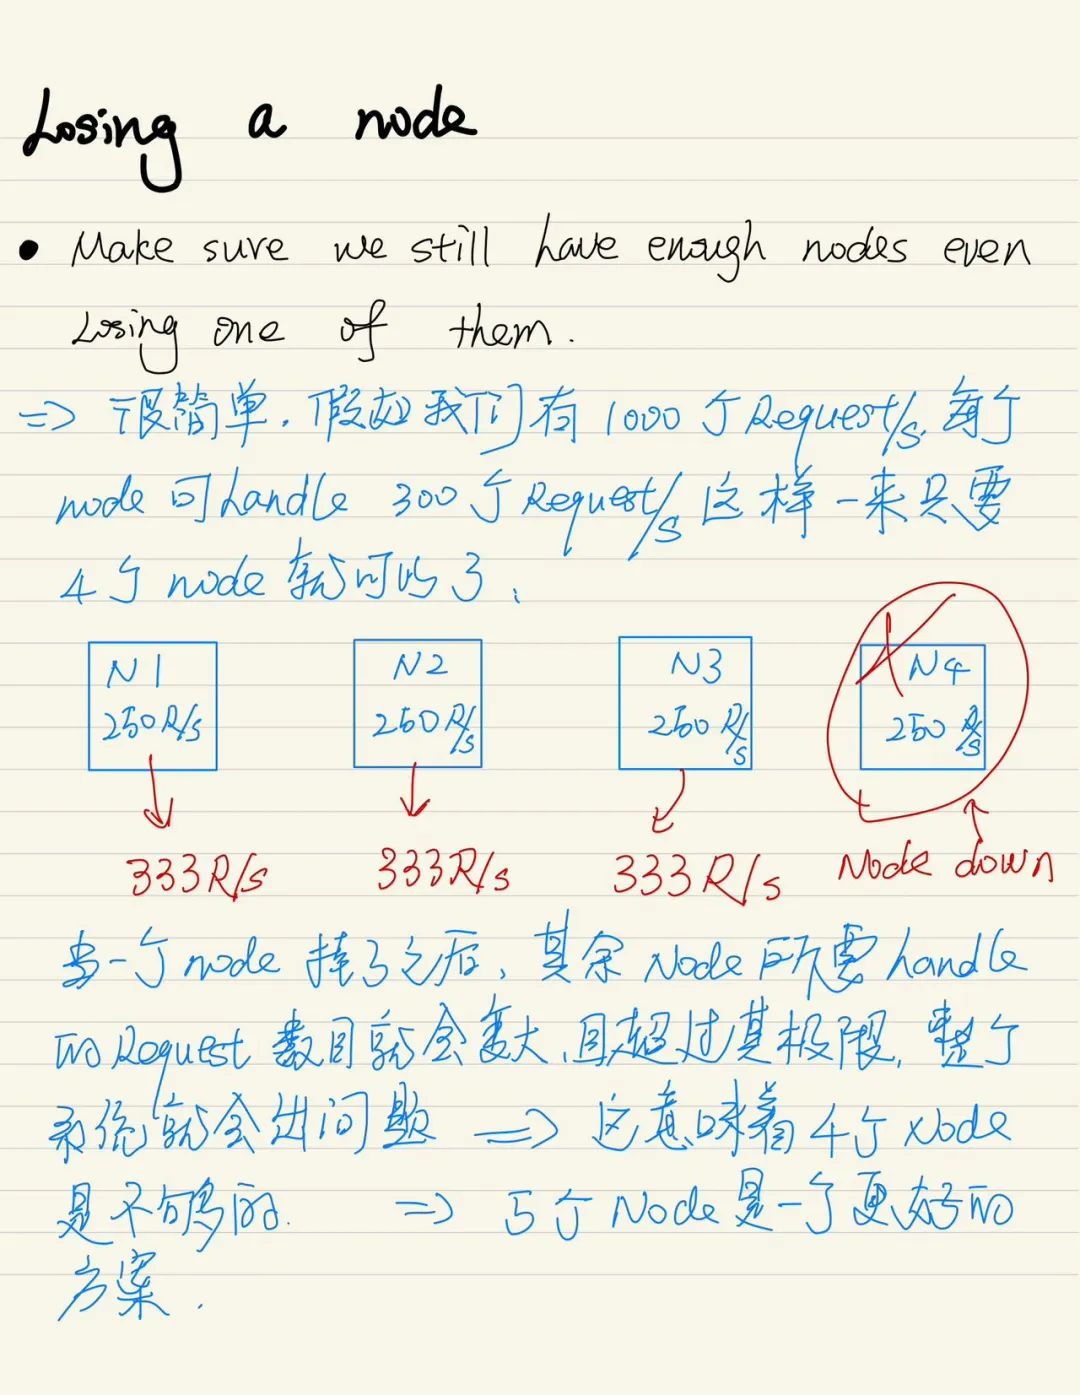 Losing a node
• Make sure we still have enough nodes even
Losing one of them.
=> 很简单, 假如我们有 1000 个 Request/s, 每个
node 可 handle 300 个 Request/s 这样一来只要
4 个 node 就可以了、
N1 N2 N3 N4
250R/s 250R/s 250R/s 250R/s
333R/s 333R/s 333R/s Node down
当一个 node 掉了之后、其余 Node 所要 handle
的 Request 数目就会变大、且超过其极限, 整个
系统就会出问题 => 这意味着 4个 Node
是不够的. => 5个 Node 是一个更好的
方案.